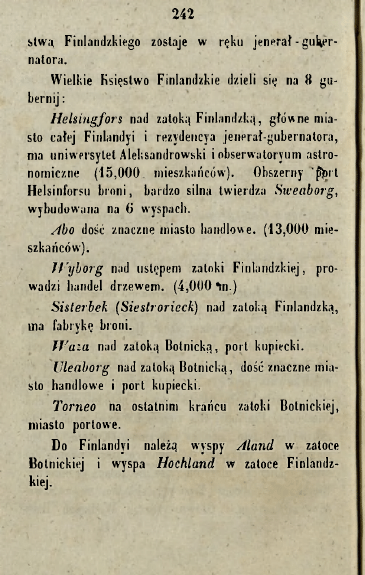 242
stwa Finlandzkiego zostaje w ręku jenerał-guber-
natora.
Wielkie Księstwo Finlandzkie dzieli się na 8 gu-
bernij:
Helsingfors nad zatoką Finlandzką, główne mia-
sto całej Finlandyi i rezydencya jenerał-gubernatora,
ma uniwersytet Aleksandrowski i obserwatoryum astro-
nomiczne (15,000 mieszkańców). Obszerny port
Helsinforsu broni, bardzo silna twierdza Sweaborg,
wybudowana na 6 wyspach.
Abo dość znaczne miasto handlowe. (13,000 mie-
szkańców).
Wyborg nad ustępem zatoki Finlandzkiej, pro-
wadzi handel drzewem. (4,000 m.)
Sisterbek (Siestrorieck) nad zatoką Finlandzką,
ma fabrykę broni.
Waza nad zatoką Botnicką, port kupiecki.
Uleaborg nad zatoką Botnicką, dość znaczne mia-
sto handlowe i port kupiecki.
Torneo na ostatnim krańcu zatoki Botnickiej,
miasto portowe.
Do Finlandyi należą wyspy Aland w zatoce
Botnickiej i wyspa Hochland w zatoce Finlandz-
kiej.